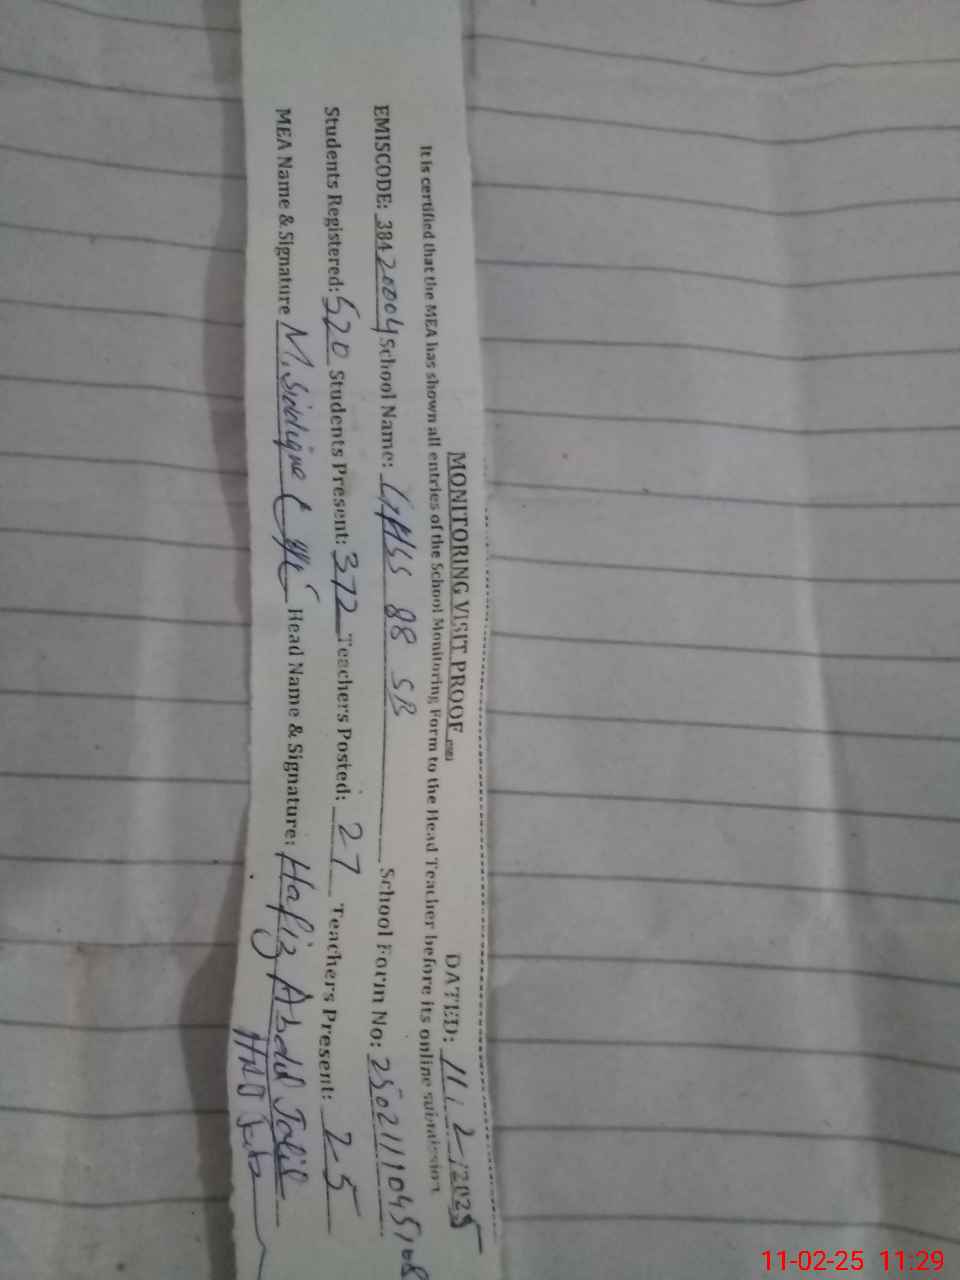 MONITORING VISIT PROOF DATED: 11.2.2025
It is certified that the MEA has shown all entries of the School Monitoring Form to the Head Teacher before its online submission
EMISCODE: 38420004 School Name: GHSS 88 SB School Form No: 25021110451
Students Registered: 520 Students Present: 372 Teachers Posted: 27 Teachers Present: 25
MEA Name & Signature M. Siddique Head Name & Signature: Hafiz Abdul Jalil
11-02-25 11:29